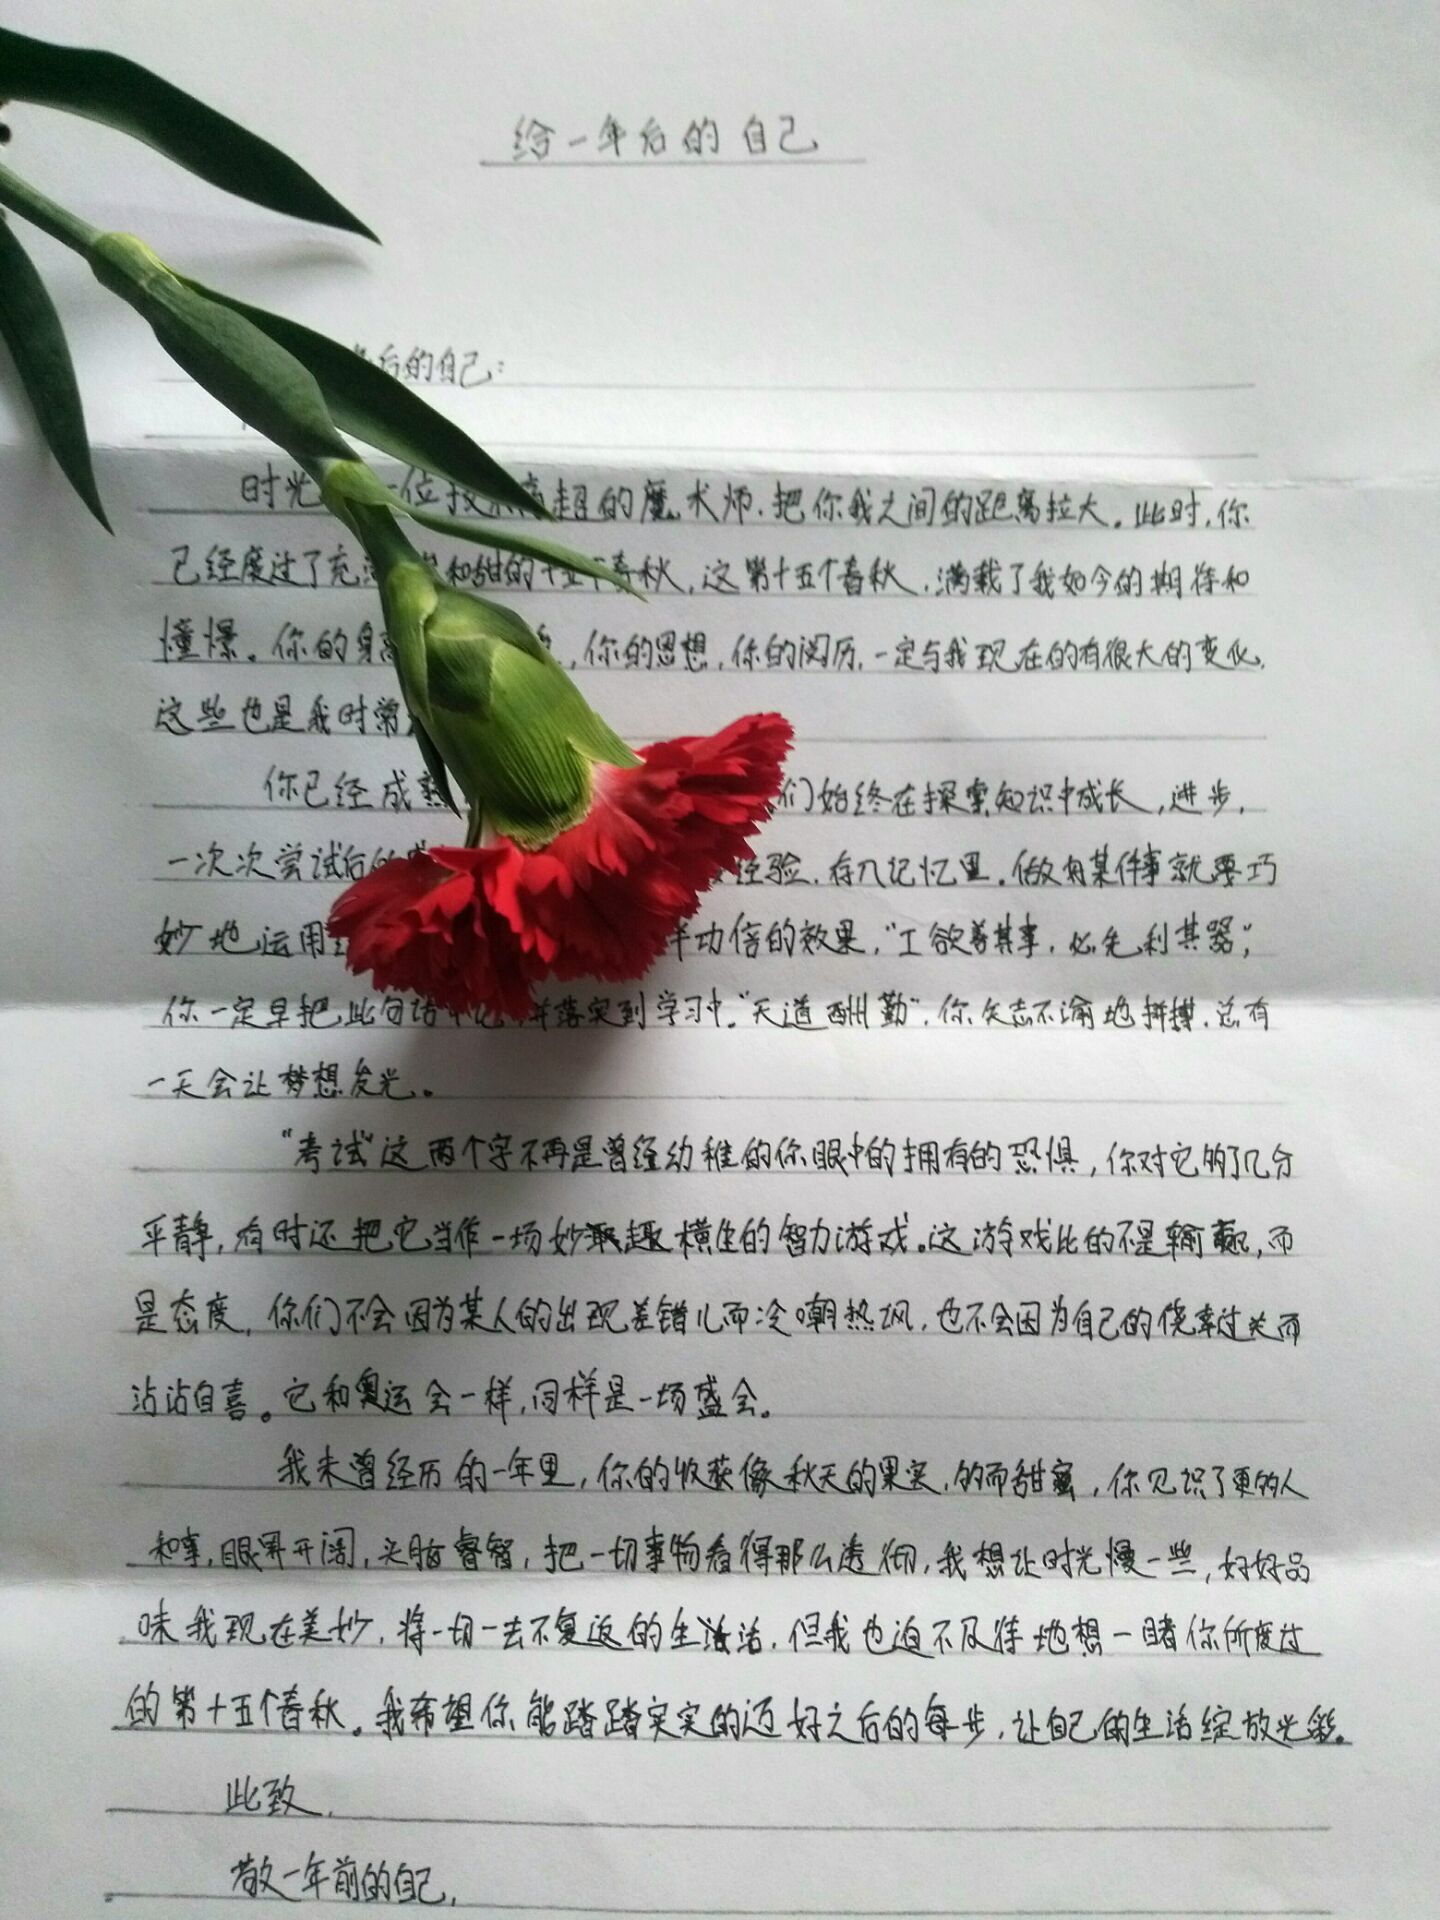 给一年后的自己
后的自己：
时光 一位技 高超的魔术师，把你我之间的距离拉大。此时，你
已经度过了充 和甜的十五个春秋，这第十五个春秋，满载了我如今的期待和
憧憬。你的身高 ，你的思想，你的阅历，一定与我现在的有很大的变化，
这些也是我时常
你已经成熟 们始终在探索知识中成长，进步，
一次次尝试后的 经验，存入记忆里。做有某件事就要巧
妙地运用 半功倍的效果，“工欲善其事，必先利其器”，
你一定早把此句话牢记，并落实到学习中。“天道酬勤”，你矢志不渝地拼搏，总有
一天会让梦想发光。
“考试”这两个字不再是曾经幼稚的你眼中的拥有的恐惧，你对它多了几分
平静，有时还把它当作一场妙趣横生的智力游戏。这游戏比的不是输赢，而
是态度，你们不会因为某人的出现差错儿而冷嘲热讽，也不会因为自己的侥幸过关而
沾沾自喜。它和奥运会一样，同样是一场盛会。
我未曾经历的一年里，你的收获像秋天的果实，多而甜蜜，你见识了更多人
和事，眼界开阔，头脑睿智，把一切事物看得那么透彻，我想让时光慢一些，好好品
味我现在美妙，将一切一去不复返的生活，但我也迫不及待地想一睹你所度过
的第十五个春秋。我希望你能踏踏实实的迈好之后的每步，让自己的生活绽放光彩。
此致，
敬一年前的自己，